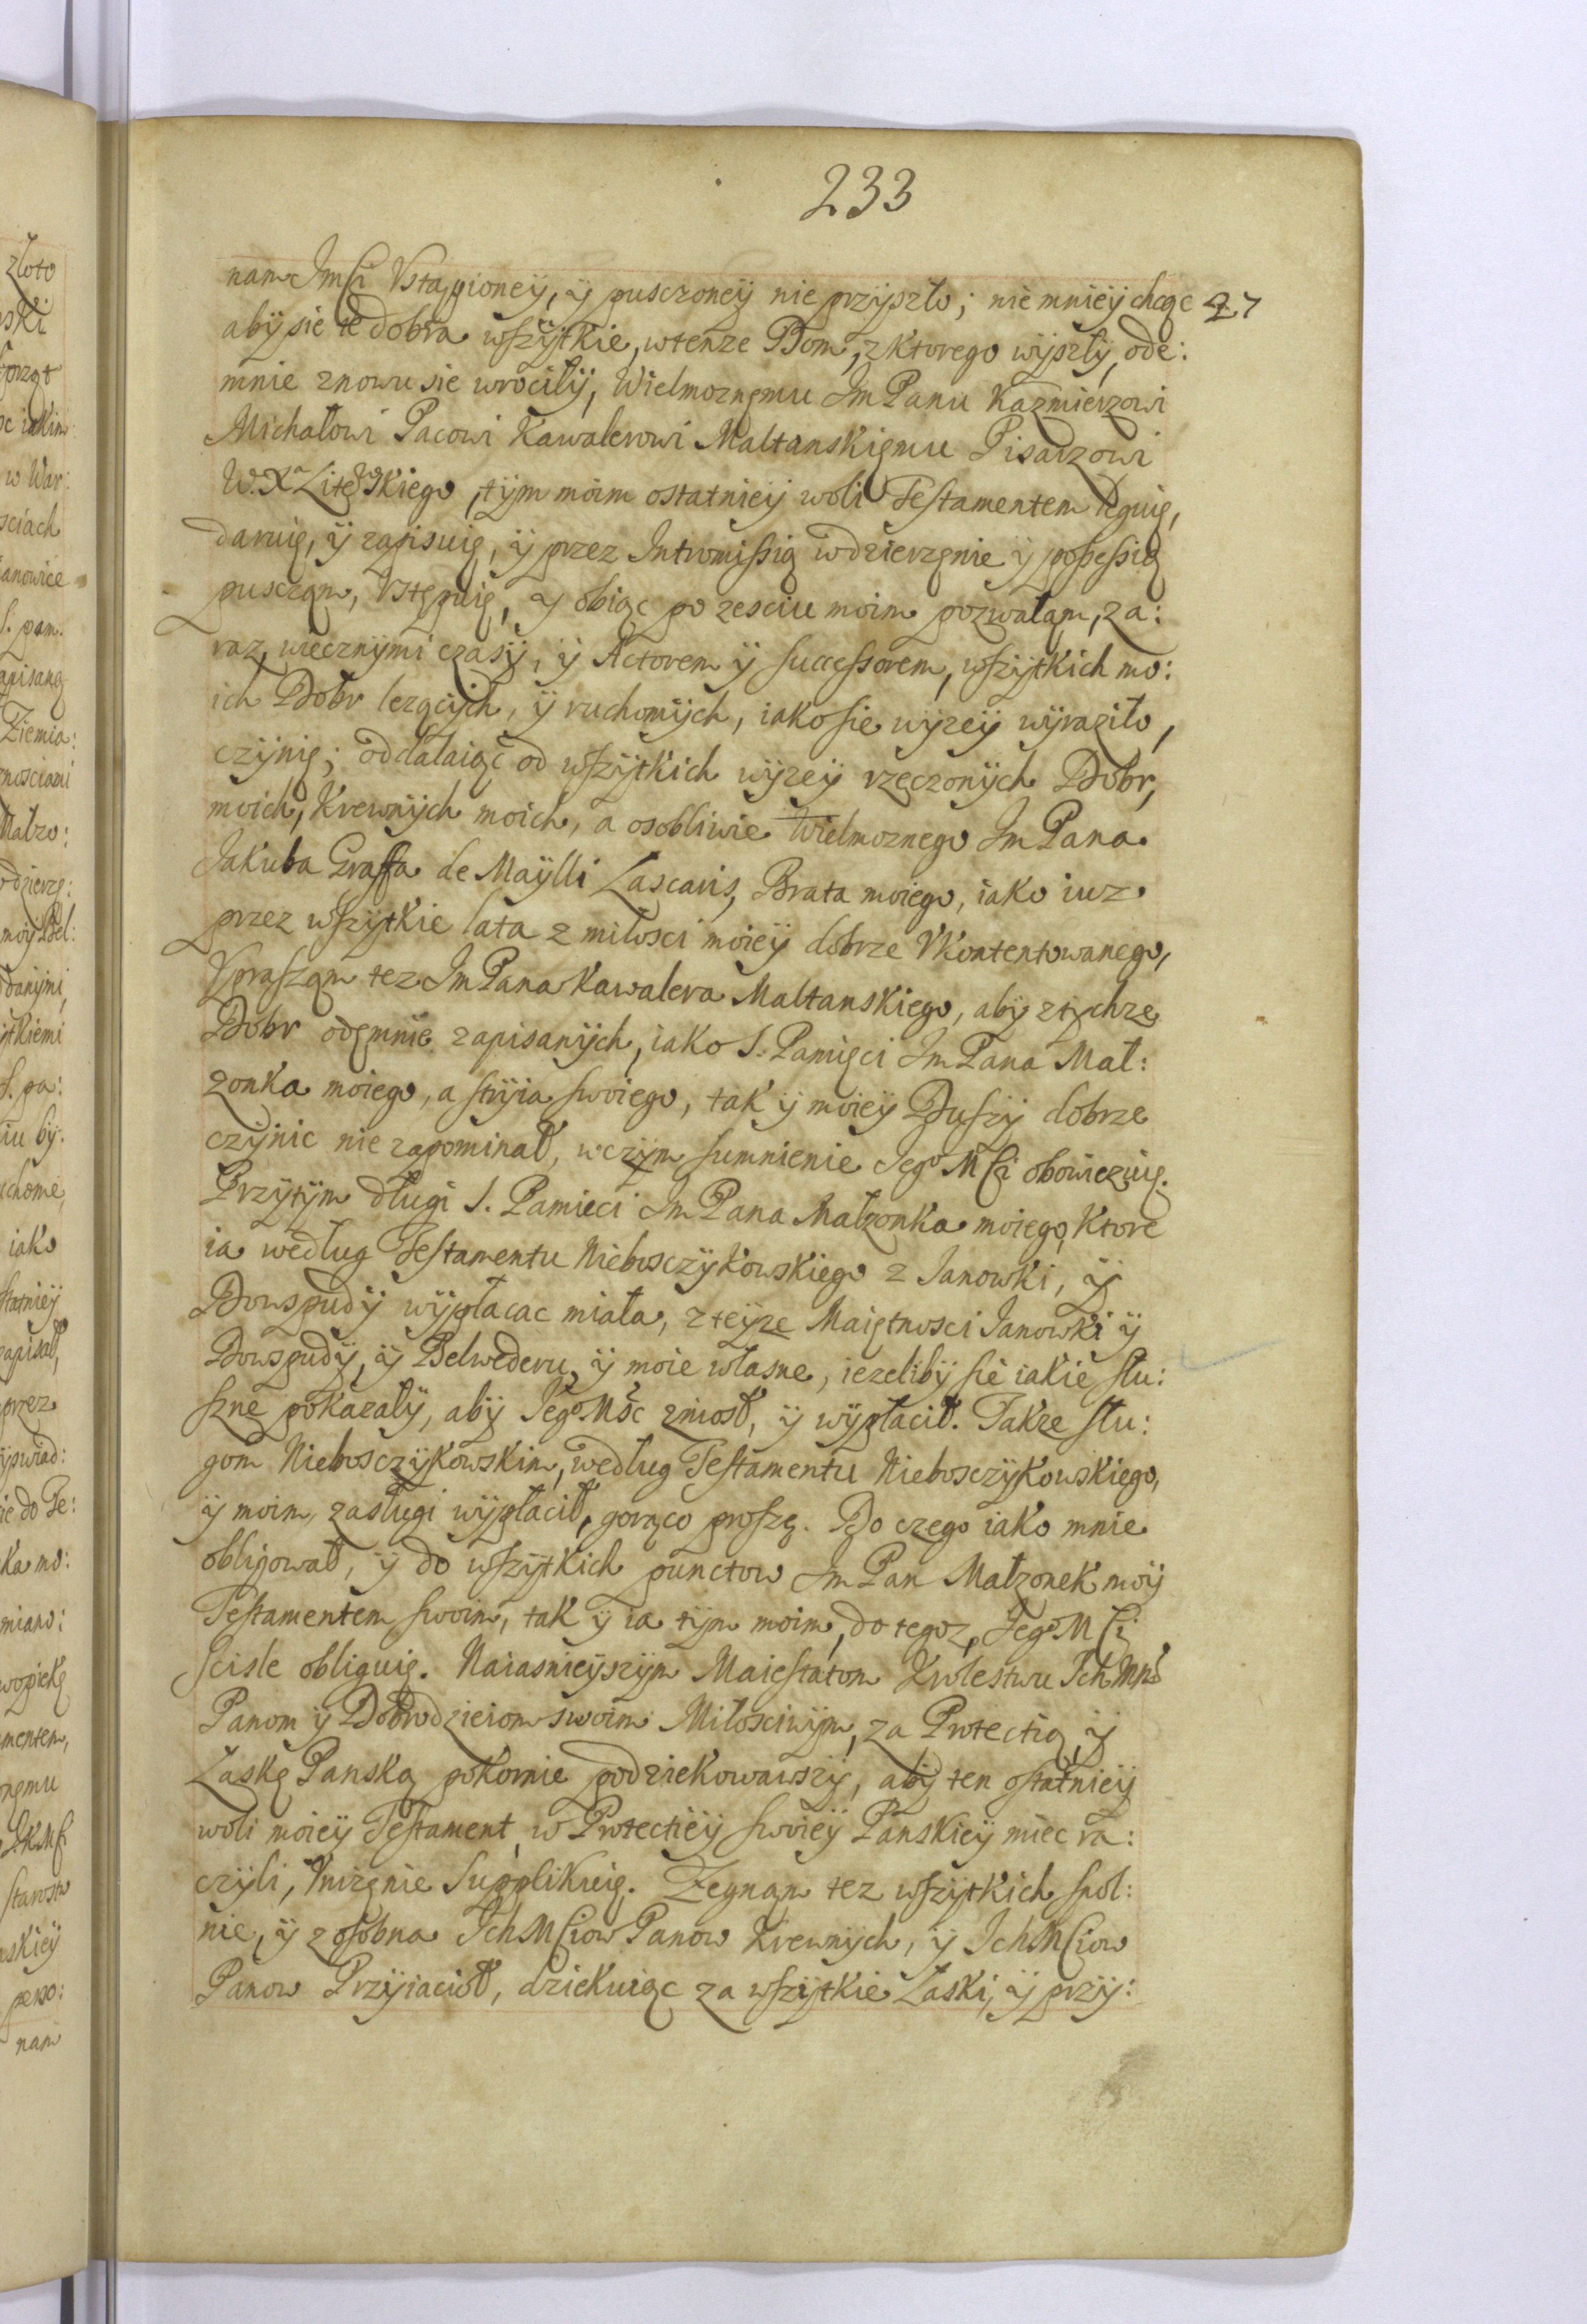 233
nam Jmści Vstąpioneÿ, ÿ pusczoneÿ nie przÿszło; niemnieÿ chcąc 27
abÿ sie te dobra wszÿtkie, wtenze Dom, z ktorego wÿszłÿ, ode:
mnie znowu sie wrociłÿ, Wielmoznęmu Jm Panu Kazmierzowi
Michałowi Pacowi Kawalerowi Maltanskięmu Pisarzowi
W. Xa Litewskiego, tÿm moim ostatnieÿ woli Testamentem leguię,
daruię, ÿ zapisuię, ÿ przez Intromissią wdzierzęnie ÿ possessią
puscząm, Vstępuię, ÿ obiąc po zesciu moim pozwałąm, za:
raz, wiecznÿmi czasÿ, ÿ Actorem ÿ successorem, wszÿtkich mo:
ich Dobr lezącÿch, ÿ ruchomÿch, iako sie wÿzeÿ wÿraziło,
czÿnię; oddalaiąc od wszÿtkich wÿzeÿ rzeczonÿch Dobr,
moich, Krewnÿch moich, a osobliwie Wielmoznego Jm Pana
Jakuba Graffa de Maÿlli Lascaris, Brata moiego, iako iuz
przez wszÿtkie lata z miłosci moieÿ dobrze Vkontentowanego,
Vprasząm tez Jm Pana Kawalera Maltanskiego, abÿ z tÿchze
Dobr odęmnie zapisanÿch, iako S. Pamięci Jm Pana Mał:
zonka moiego, a strÿia swoiego, tak ÿ moieÿ Duszÿ dobrze
czÿnic nie zapominał, w czÿm sumnienie Jego Mści obowiezuię.
Przÿtÿm długi S. Pamieci Jm Pana Małzonka moiego, ktore
ia według Testamentu Nieboszczÿkowskiego z Janowki, ÿ
Dowspudÿ wÿpłacac miała, z teÿze Maiętnosci Janowki ÿ
Dowspudÿ, ÿ Belwederu, ÿ moie własne, iezelibÿ sie iakie słu:
szne pokazałÿ, abÿ Jego Mśc zniosł, ÿ wÿpłacił. Takze słu:
gom Nieboszczÿkowskim, według Testamentu Nieboszczÿkowskiego,
ÿ moim, zasługi wÿpłacił, gorąco proszę. Do czego iako mnie
obligował, ÿ do wszÿtkich punctow Jm Pan Małzonek moÿ
Testamentem swoim, tak ÿ ia tÿm moim, do tegoz, Jego Mści
scisle obliguię. Naiasnieÿszÿm Maiestatom Krolestwu Ich Mm
Panom ÿ Dobrodzieiom swoim Miłosciwÿm, za Protectią, ÿ
Łaskę Panską pokornie podziekowawszÿ, abÿ ten ostatnieÿ
woli moieÿ Testament, w Protectieÿ swoieÿ Panskieÿ miec ra:
czÿli, Vnizęnie Supplikuię. Zegnąm tez wszÿtkich spol:
nie, ÿ z osobna Ich Mściow Panow Krewnÿch, ÿ Ich Mściow
Panow Przÿiacioł, dziekuiąc za wszÿtkie Łaski, ÿ przÿ: